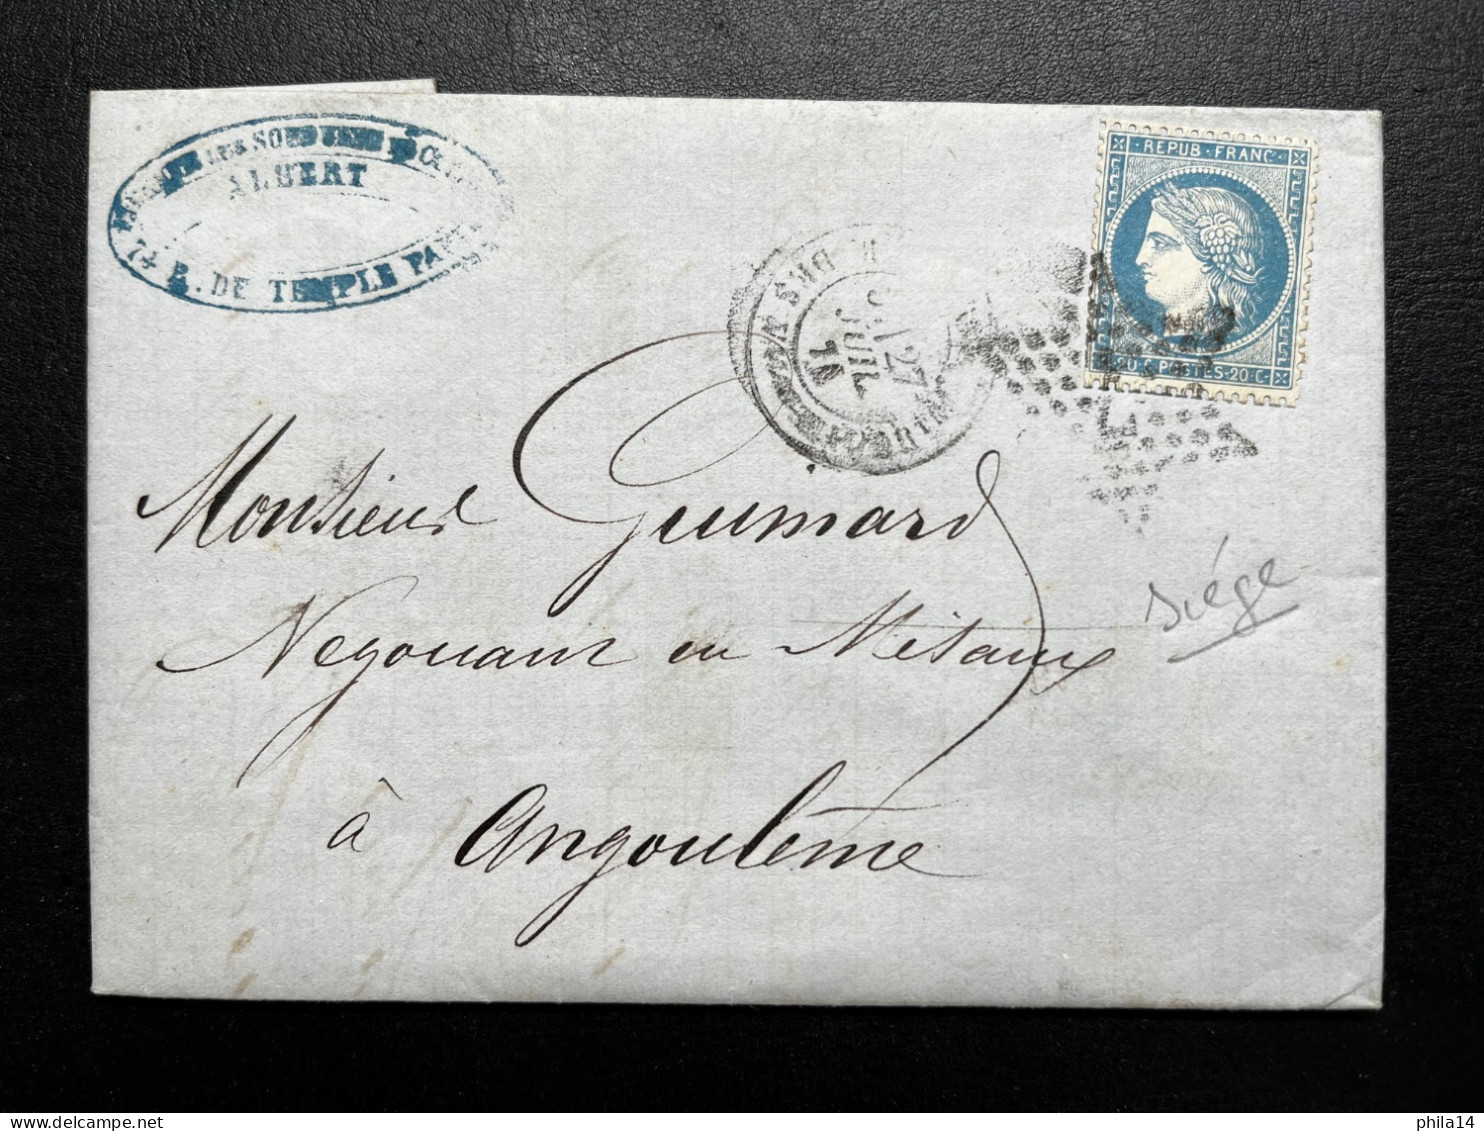 ALBERT
74 R. DE TEMPLE PARIS
REPUB · FRANC
20 · C · POSTES · 20 · C
27
JUIL
71
Monsieur Guimard
Negociant en Métaux
à Angoulême
Siége
phila14